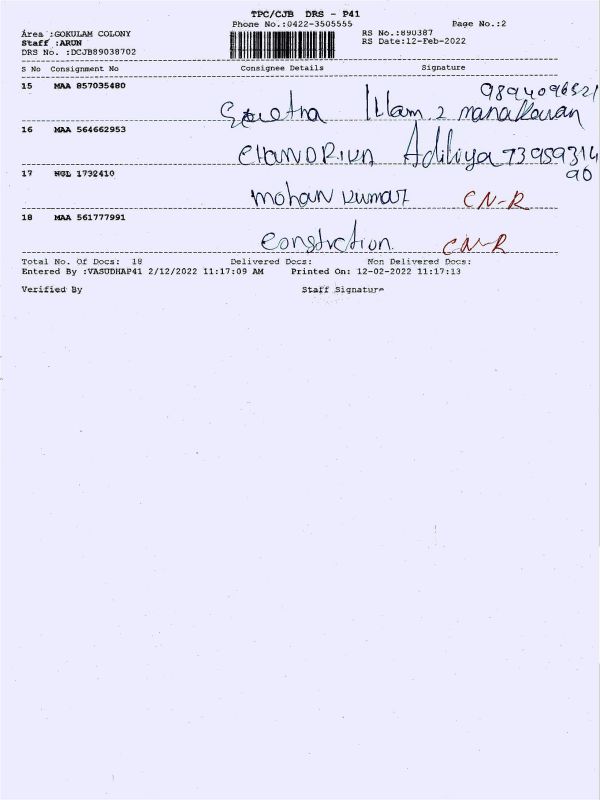 TPC/CJB DRS - P41
Phone No.:0422-3505555 Page No.:2
Area :GOKULAM COLONY RS No.:890387
Staff :ARUN RS Date:12-Feb-2022
DRS No. :DCJB89038702
S No Consignment No Consignee Details Signature
15 MAA 857035480 9894096521
manakavan
16 MAA 564662953
Adiliya 73959314
90
17 NGL 1732410
mohan kumar CN-R
18 MAA 561777991
Constvction CN-R
Total No. Of Docs: 18 Delivered Docs: Non Delivered Docs:
Entered By :VASUDHAP41 2/12/2022 11:17:09 AM Printed On: 12-02-2022 11:17:13
Verified By Staff Signature